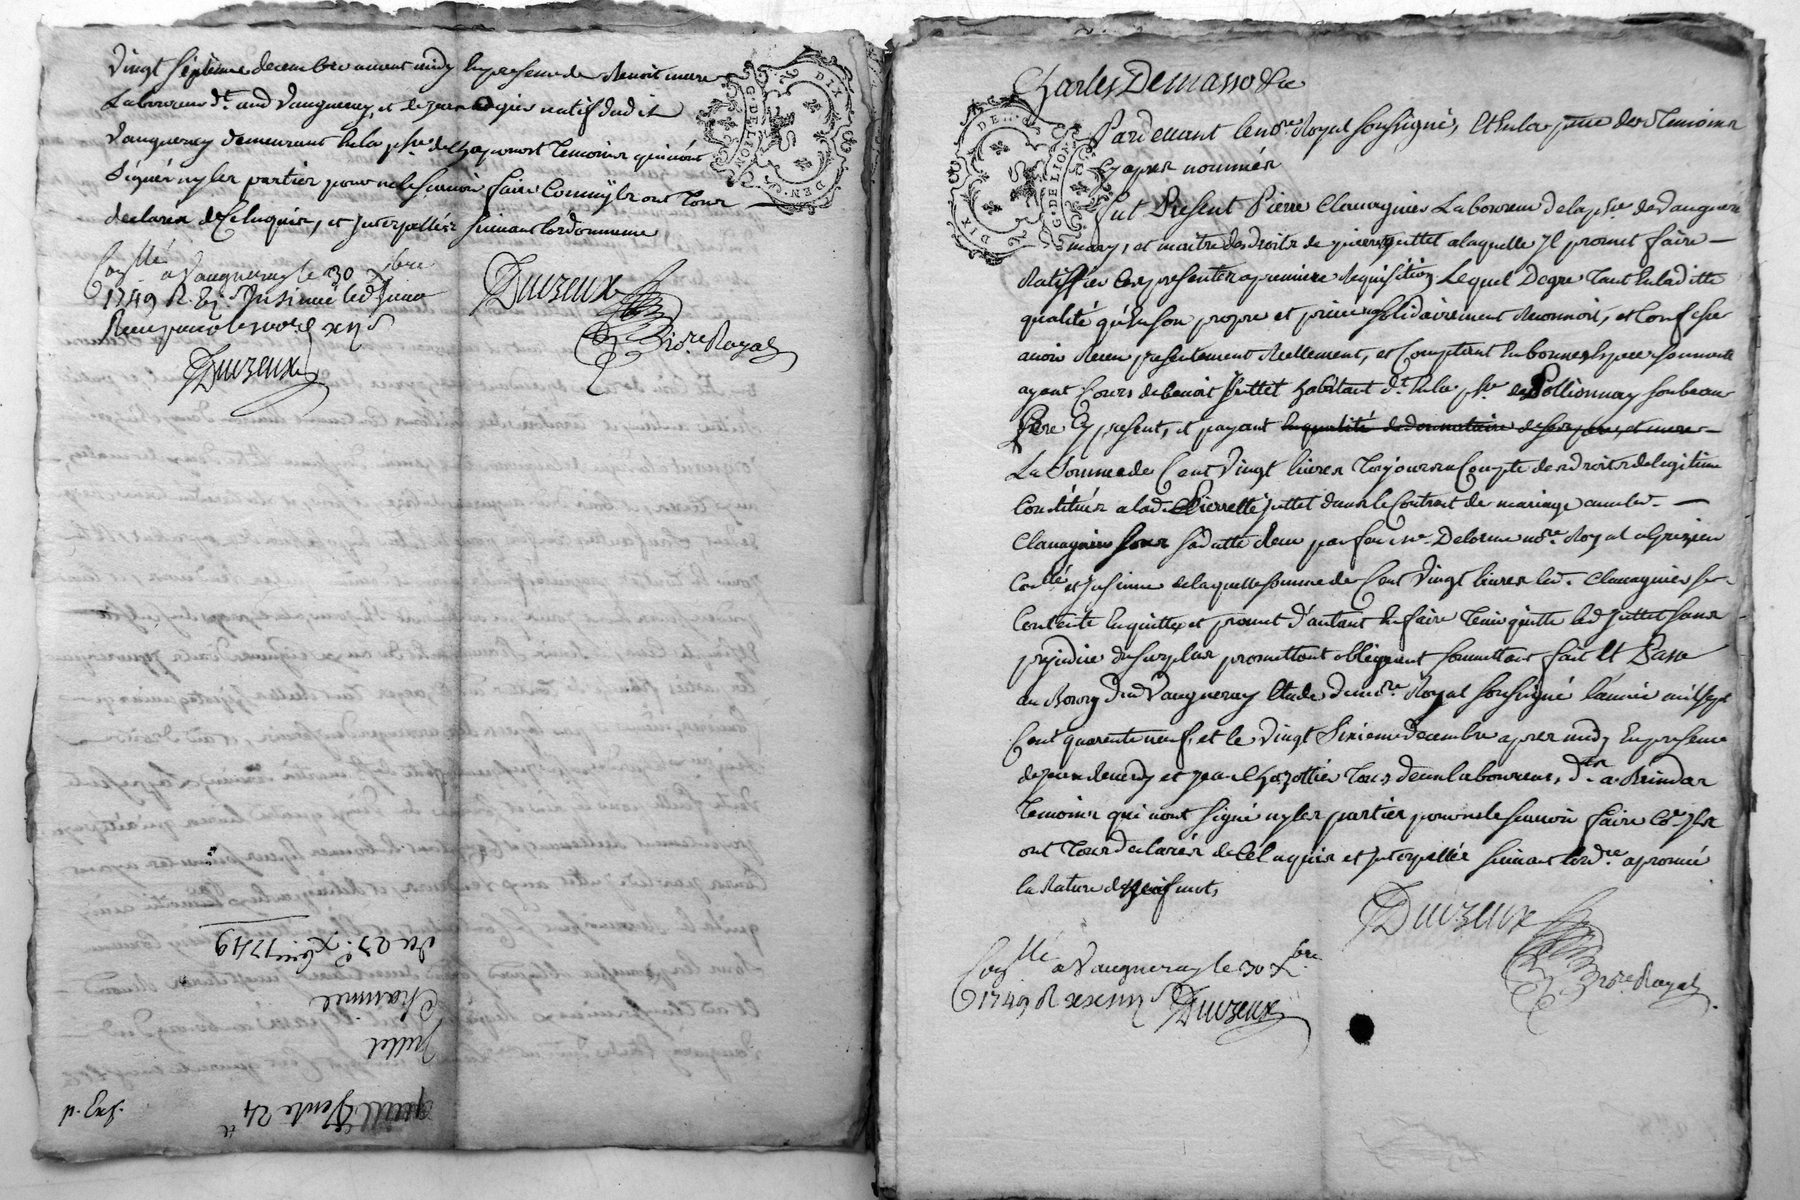 Vingt septieme decembre avant midy En presence de Benoit mure
Laboureur dt. aud Vaugneray, et de Jean ogier natif dudit
Vaugneray demeurant En la psse de Chaponost Temoins qui n'ont
Signé ny les parties pour ne le scavoir faire Comm'ils ont Tous
declarés de Ce Enquis, et Interpellés suivant l'ordonnance
Conllé a Vaugneray le 30 xbre
1749 R.
Duizeux
Duizeux
Nore Royal
du 27e. xbre 1749
Juttet
quitt Vente 24
n. Exp.
DIX
DEN.
G. DE LION
Charles Demasso &c
Pardevant le nore Royal soussigné, Et En la pnce des Temoins
Cy apres nommés
fut Present Pierre Clavagnier Laboureur de la psse de Vaugneray
mary, et maitre des droits de pierrette Juttet a laquelle Il promet faire
Ratiffier Ces presentes a premiere Requisition, Lequel de gre Tant En laditte
qualité qu'En son propre et privé nom solidairement Reconnoit, et Confesse
avoir Receu presentement Reellement, et Comptant En bonnes Especes sonnante
ayant Cours de benoit Juttet habitant dt. En la psse de Pollionnay son beau
frere Cy present, et payant En qualité de donnataire de ses pere, et mere
La Somme de Cent Vingt livres Toujours a Compte des droits de legitime
Constitués a lad. Pierrette Juttet dans le Contract de mariage avec led.
Clavagnier sous sa datte Receu par feu me. Delorme nore. Royal a Grezieu
Conllé et Insinué de laquelle somme de Cent Vingt livres led. Clavagnier se
Contente En quitte et promet d'autant En faire Tenir quitte led Juttet sans
prejudice du surplus promettant obligeant soumettant fait Et Passé
au Bourg dud Vaugneray Etude du nore. Royal soussigné l'année mil sept
Cent quarente neuf, et le Vingt Sixieme decembre apres midy En presence
de Jean et Jean Chazottier Tous deux laboureurs, dts. a Brindas
Temoins qui n'ont signé ny les parties pour ne le scavoir faire Co. Ils
ont Tous declarés de Ce Enquis et Interpellés suivant l'ordre. aprouvé
la Rature de neuf mots,
Duizeux
Nore Royal
Conllé a Vaugneray le 30 xbre
1749 R
Duizeux
DIX
DEN.
G. DE LION